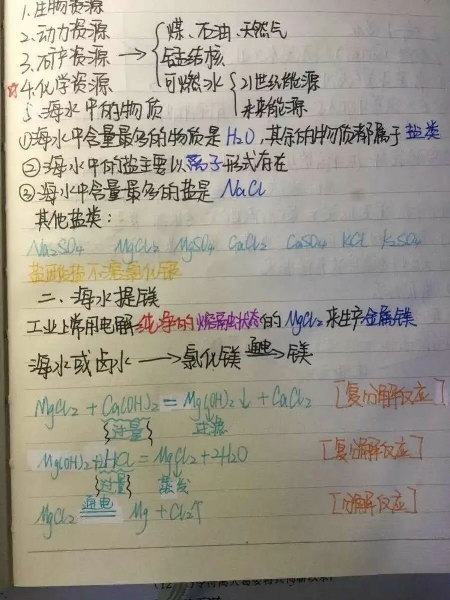 1.生物资源
2.动力资源
3.矿产资源 → { 煤、石油、天然气
锰结核
可燃冰 { 21世纪能源
未来能源
☆4.化学资源
5.海水中的物质
①海水中含量最多的物质是H₂O,其余的物质都属于盐类
②海水中的盐主要以离子形式存在
③海水中含量最多的盐是NaCl
其他盐类:
Na₂SO₄ MgCl₂ MgSO₄ CaCl₂ CaSO₄ KCl K₂SO₄
二、海水提镁
工业上常用电解纯净的熔融状态的MgCl₂来生产金属镁
海水或卤水 → 氯化镁 通电→ 镁
MgCl₂ + Ca(OH)₂ = Mg(OH)₂↓ + CaCl₂ [复分解反应]
过量 过滤
Mg(OH)₂+2HCl = MgCl₂+2H₂O [复分解反应]
过量 蒸发
MgCl₂ 通电 Mg + Cl₂↑ [分解反应]